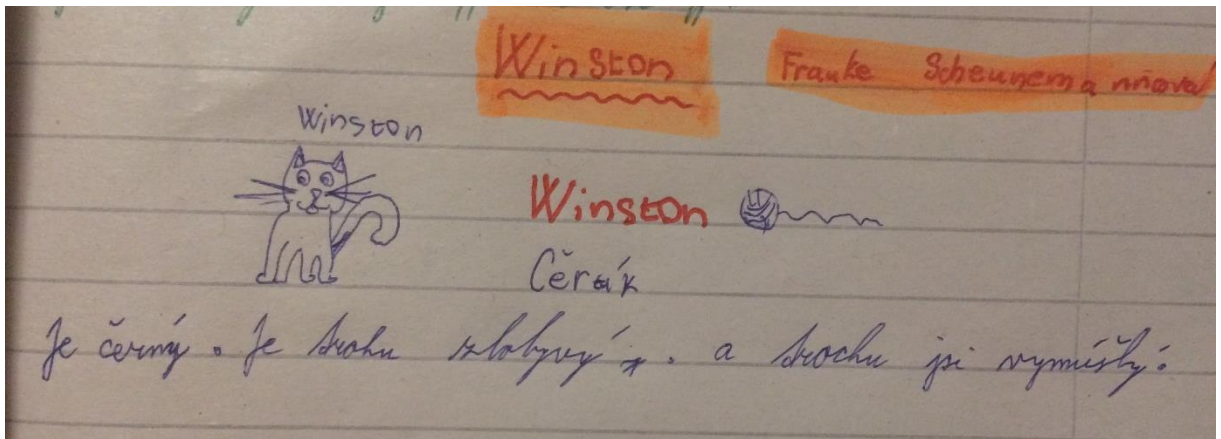 Winston Frauke Scheunemannová
Winston
Winston
Cěrák
Je černý. Je trohu zlobyvý. a trochu jsi vymíšlý.